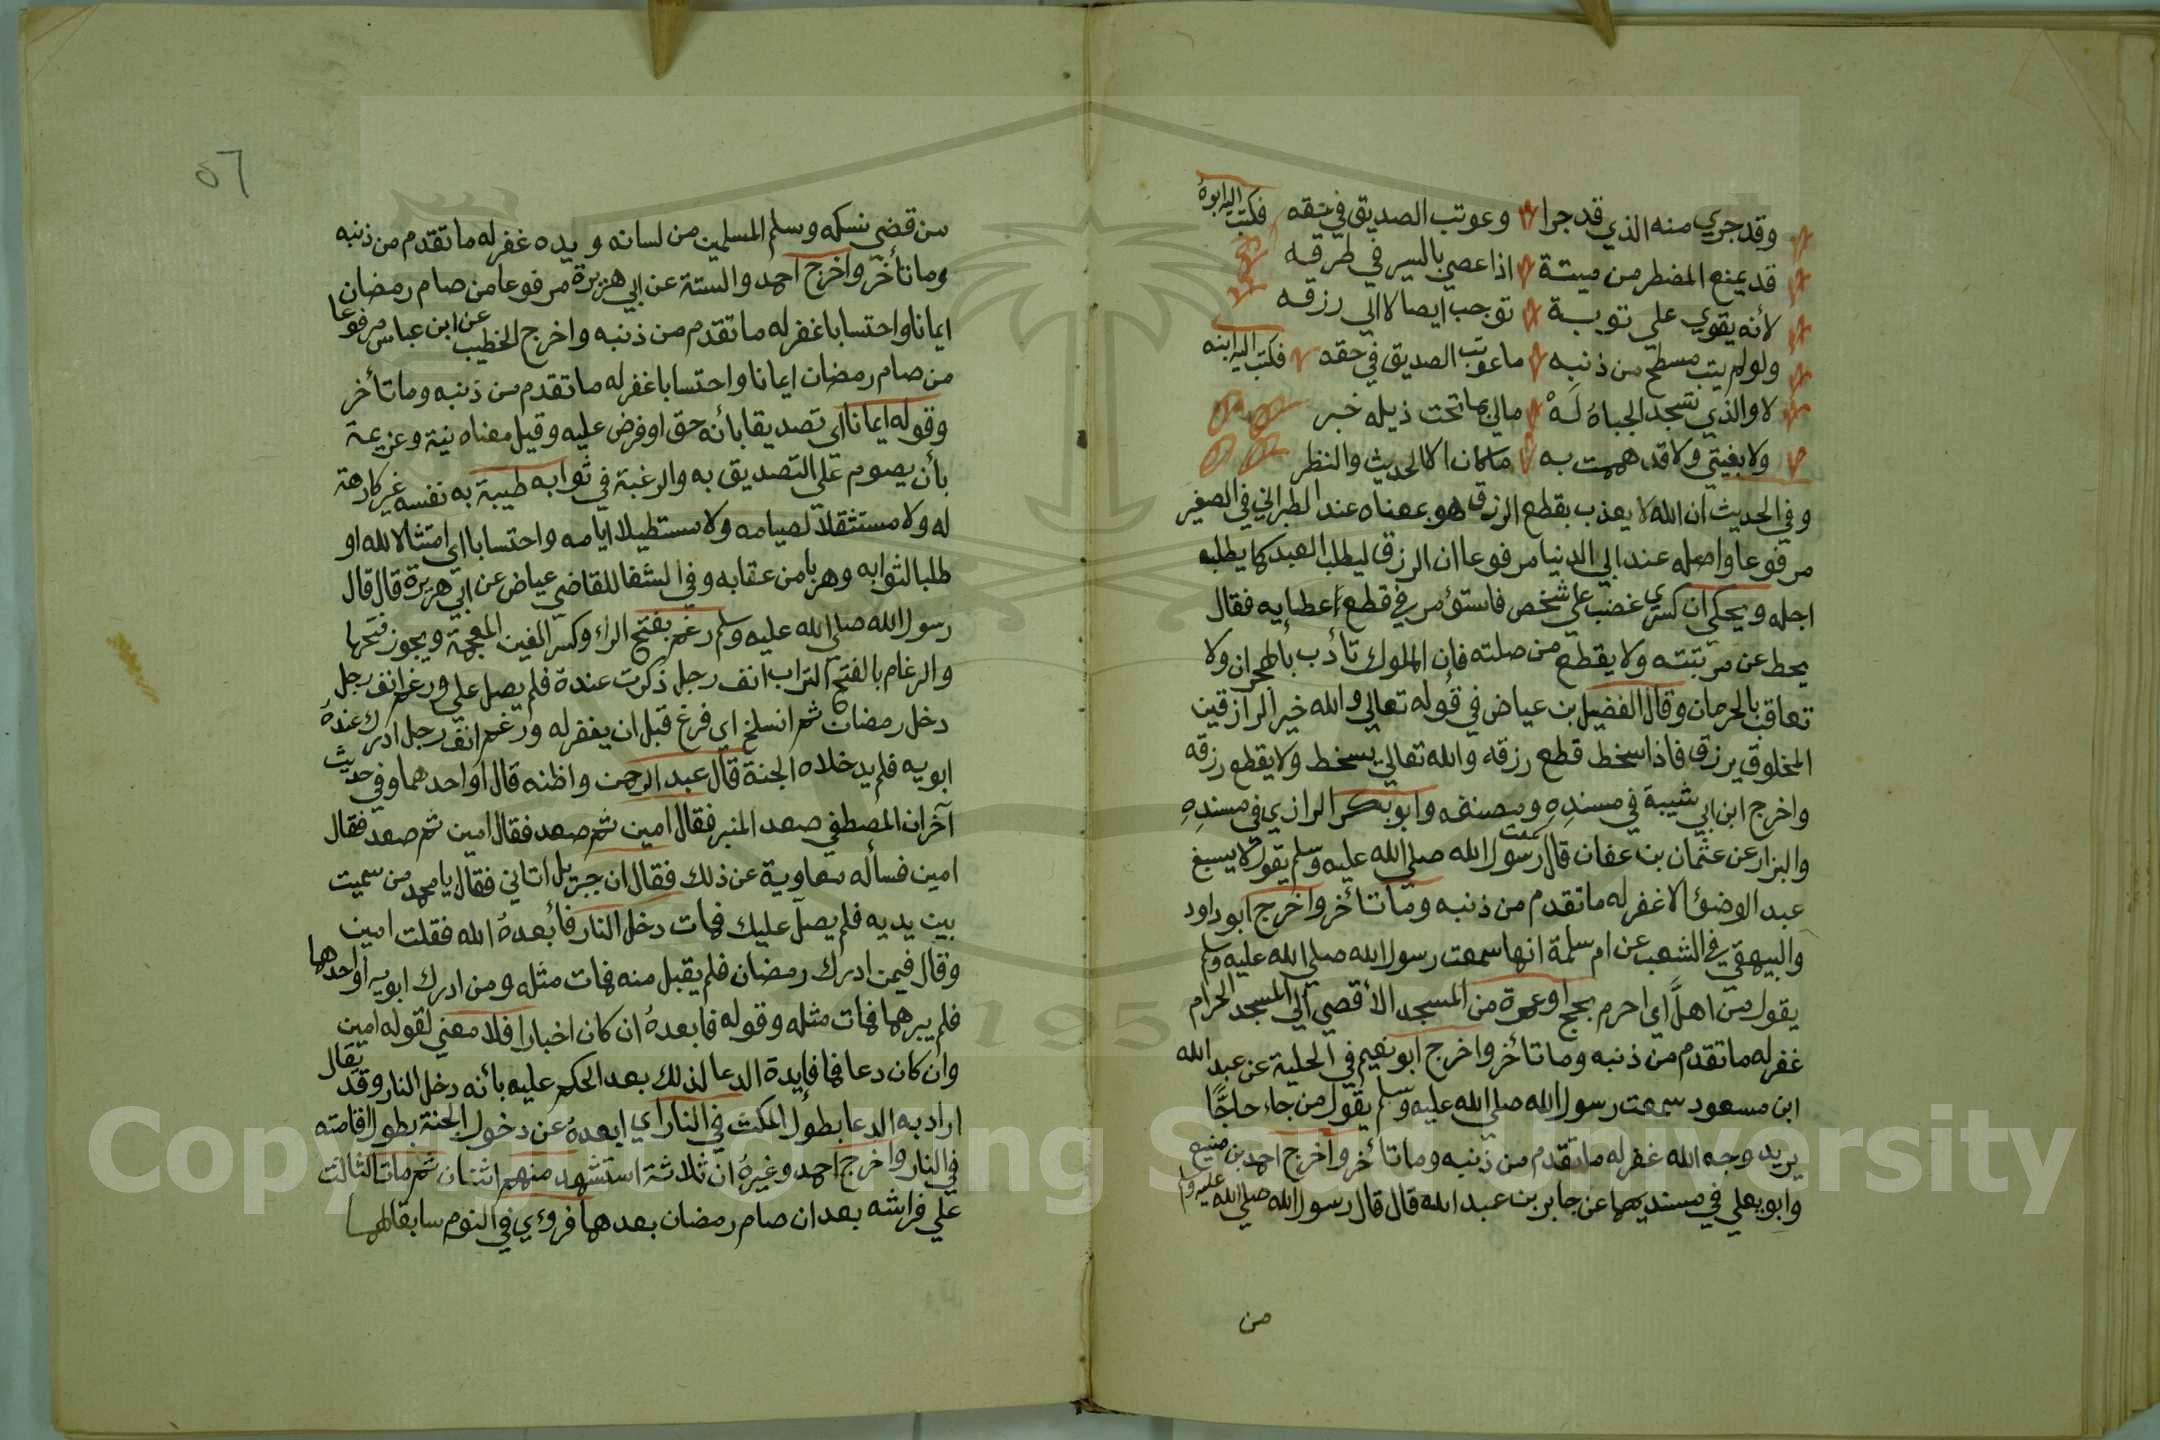 وقد جري منه الذي قد جرا وعوتب الصديق في حقه فكتب اليه ابوه
قد يمنع المضطر من ميتة اذا عصي بالسير في طرقه
لأنه يقوي علي توبة توجب ايصالا الي رزقه
ولو لم يتب مسطح من ذنبه ما عوتب الصديق في حقه فكتب اليه ابنه
لا والذي تسجد الجباه له مالي بما تحت ذيله خبر
ولا بفيتي ولا قد هممت به ما كان الا الحديث والنظر
وفي الحديث ان الله لا يعذب بقطع الرزق هو بمعناه عند الطبراني في الصغير
مرفوعا واصله عند ابي الدنيا مرفوعا ان الرزق ليطلب العبد كما يطلبه
اجله ويحكي ان كسري غضب علي شخص فاستؤمر في قطع اعطايه فقال
يحط عن مرتبته ولا يقطع من صلته فان الملوك تأدب بالهجران ولا
تعاقب بالحرمان وقال الفضيل بن عياض في قوله تعالي والله خير الرازقين
المخلوق يرزق فاذا سخط قطع رزقه والله تعالي يسخط ولا يقطع رزقه
واخرج ابن ابي شيبة في مسنده ومصنفه وابو بكر الرازي في مسنده
والبزار عن عثمان بن عفان قال سمعت رسول الله صلي الله عليه وسلم يقول لا يسبغ
عبد الوضؤ الا غفر له ما تقدم من ذنبه وما تأخر واخرج ابو داود
والبيهقي في الشعب عن ام سلمة انها سمعت رسول الله صلي الله عليه وسلم
يقول من اهل اي احرم بحج او عمرة من المسجد الأقصي الي المسجد الحرام
غفر له ما تقدم من ذنبه وما تأخر واخرج ابو نعيم في الحلية عن عبد الله
ابن مسعود سمعت رسول الله صلي الله عليه وسلم يقول من جاء حاجًا
يريد وجه الله غفر له ما تقدم من ذنبه وما تأخر واخرج احمد بن منيع
وابو يعلي في مسنديهما عن جابر بن عبد الله قال قال رسول الله صلي الله عليه وسلم
من
٥٦
من قضي نسكه وسلم المسلمين من لسانه ويده غفر له ما تقدم من ذنبه
وما تأخر واخرج احمد والستة عن ابي هريرة مرفوعا من صام رمضان
ايمانا واحتسابا غفر له ما تقدم من ذنبه واخرج الخطيب عن ابن عباس مرفوعا
من صام رمضان ايمانا واحتسابا غفر له ما تقدم من ذنبه وما تأخر
وقوله ايمانا اي تصديقا بأنه حق او فرض عليه وقيل معناه نية وعزيمة
بأن يصوم علي التصديق به والرغبة في ثوابه طيبة به نفسه غير كارهة
له ولا مستثقلا لصيامه ولا مستطيلا ايامه واحتسابا اي امتثالا لله او
طلبا لثوابه وهربا من عقابه وفي الشفا للقاضي عياض عن ابي هريرة قال قال
رسول الله صلي الله عليه وسلم رغم بفتح الراء وكسر الغين المعجمة ويجوز فتحها
والرغام بالفتح التراب انف رجل ذكرت عنده فلم يصل علي ورغم انف رجل
دخل رمضان ثم انسلخ اي فرغ قبل ان يغفر له ورغم انف رجل ادرك عنده
ابويه فلم يدخلاه الجنة قال عبد الرحمن واظنه قال او احدهما وفي حديث
آخر ان المصطفي صعد المنبر فقال امين ثم صعد فقال امين ثم صعد فقال
امين فسأله معاوية عن ذلك فقال ان جبريل اتاني فقال يا محمد من سميت
بين يديه فلم يصل عليك فمات دخل النار فأبعده الله فقلت امين
وقال فيمن ادرك رمضان فلم يقبل منه فمات مثله ومن ادرك ابويه او احدهما
فلم يبرهما فمات مثله وقوله فابعده ان كان اخبارا فلا معني لقوله امين
وان كان دعا فما فايدة الدعا لذلك بعد الحكم عليه بأنه دخل النار وقد يقال
اراد به الدعا بطول المكث في النار اي ابعده عن دخول الجنة بطول اقامته
في النار واخرج احمد وغيره ان ثلاثة استشهد منهم اثنان ثم مات الثالث
علي فراشه بعد ان صام رمضان بعدهما فروءي في النوم سابقا لهما
Copyright © King Saud University
195